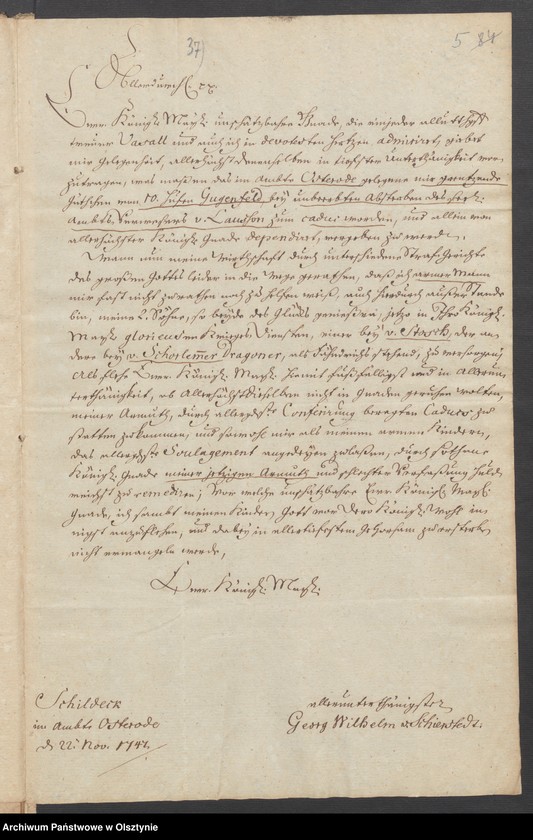 37)
5 84
Allerdurchl. pp.
Ewr. Königl. Mayt. unschätzbahre Gnade, die ein jeder
treuer Vasall und auch ich in devotesten Hertzen admiriret, giebet
mir Gelegenheit, allerhöchst denenselben in tieffster Unterthänigkeit vor-
zutragen, was maßen das im Ambte Osterode gelegene mir grentzende
Güthchen von 10. Huben Gugenfeld bey unbeerbten Absterben des
Ambts-Verwesers v. Lausson zum caduc worden, und allein von
allerhöchster Königl. Gnade dependiret, vergeben zu werden.
Wann nun meine Wirthschaft durch unterschiedene Straf-Gerichte
des großen Gottes leider in die Wege gerathen, daß ich armer Mann
mir fast nicht zu rathen noch zu helfen weiß, auch hierdurch außer Stande
bin, meine 2. Söhne, so beyde des Glücks genießen, jetzo in Ihro Königl.
Mayt. glorieusen Krieges-Diensten, einer bey v. Stosch, der an-
dere bey v. Schorlemer Dragoner, als Fähndrichs stehend, zu versorgen;
Als flehe Ewr. Königl. Mayt. hiemit fußfälligst und in Allerun-
terthänigkeit, ob Allerhöchst dieselben nicht in Gnaden geruhen wolten,
meiner Armuth, durch allergdste Conferirung beregten Caduci zu
statten zu kommen, und sowohl mir als meinen armen Kindern,
das allergdste Soulagement angedeyen zu laßen, durch sothane
Königl. Gnade meiner jetzigen Armuth und schlechter Verfaßung
zu remediren; Vor welche unschätzbahre Ewr. Königl. Mayt.
Gnade, ich sambt meinen Kindern Gott vor Dero Königl. Wohl in-
nigst anzuflehen, und dabey in allertiefstem Gehorsam zu ersterben
nicht ermangeln werde,
Ewr. Königl. Mayt.
Schildeck
im Ambte Osterode
d. 22. Nov. 1741.
allerunterthänigster
Georg Wilhelm v.
Archiwum Państwowe w Olsztynie